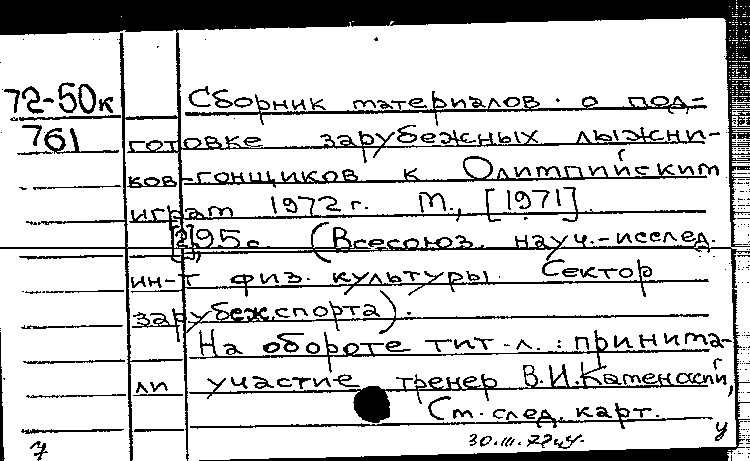 72-50к
761
Сборник материалов о под=
готовке зарубежных лыжни-
ков-гонщиков к Олимпийским
играм 1972 г. М., [1971].
[2], 95 с. (Всесоюз. науч.-исслед.
ин-т физ. культуры. Сектор
зарубеж.спорта).
На обороте тит.л.: принима-
ли участие тренер В.И.
См. след. карт.
у
7